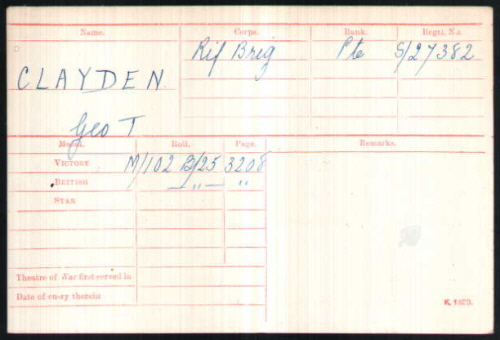 Name. Corps. Rank. Regtl. No.
Rif Brig Pte S/27382
CLAYDEN
Geo T
Medal. Roll. Page. Remarks.
VICTORY M/102 B/25 3208
BRITISH —„— „
STAR
Theatre of War first served in
Date of entry therein
K. 1380.